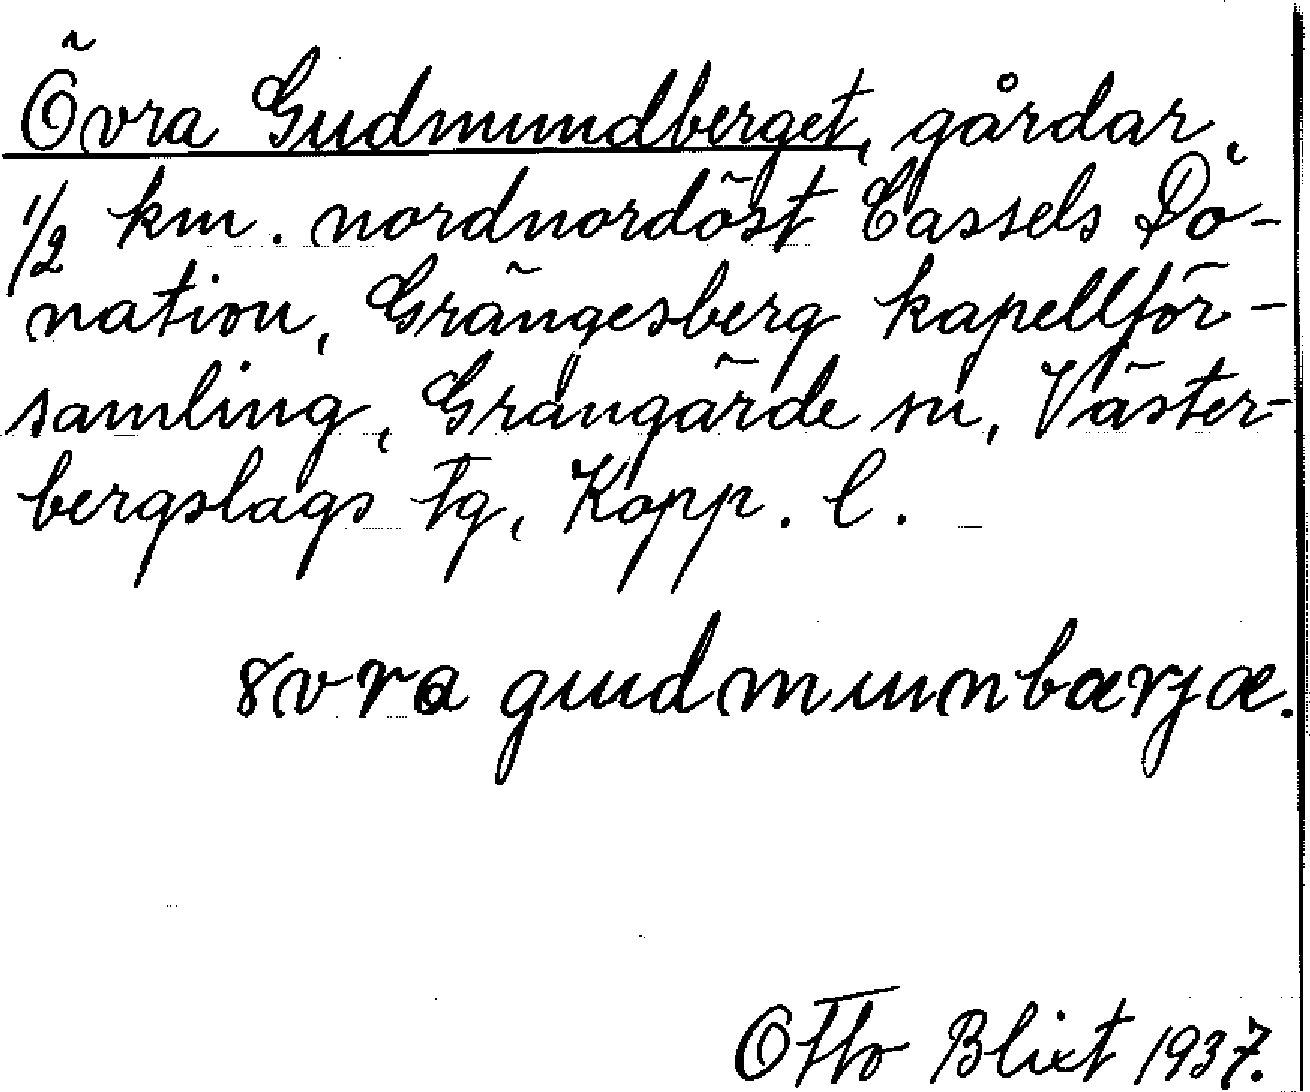 Övra Gudmundberget, gårdar,
1/2 km. nordnordöst Cassels Do-
nation, Grängesberg kapellför-
samling, Grangärde sn, Väster-
bergslags tg, Kopp. l.
8vra gudmunnbærjæ.
Otto Blixt 1937.